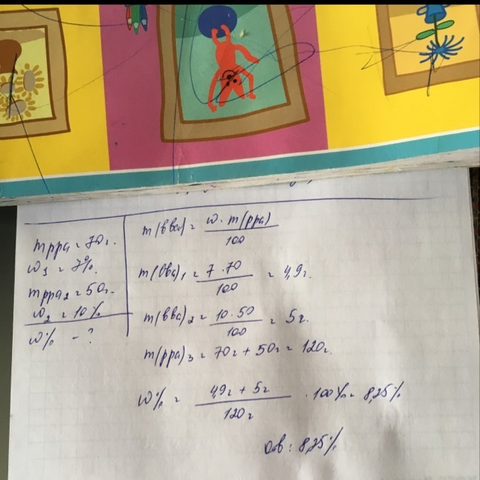 mppa = 70г.
w₁ = 7%.
mppa₂ = 50г.
w₂ = 10%
w% - ?
m(вва) = w · m(ppa) / 100
m(вва)₁ = 7 · 70 / 100 = 4,9г.
m(вва)₂ = 10 · 50 / 100 = 5г.
m(ppa)₃ = 70г + 50г = 120г.
w% = 4,9г + 5г / 120г · 100% = 8,25%
Отв: 8,25%